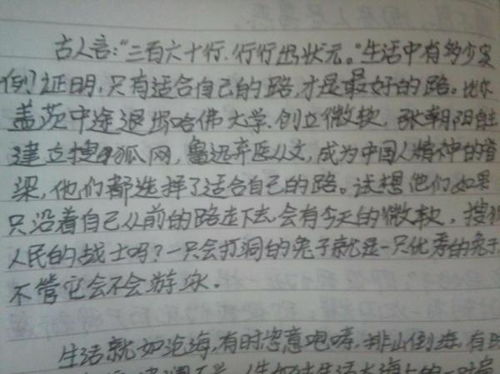 古人言:"三百六十行,行行出状元。"生活中有多少实
例证明,只有适合自己的路,才是最好的路。比尔
盖茨中途退出哈佛大学,创立微软,张朝阳自主
建立搜狐网,鲁迅弃医从文,成为中国人精神的脊
梁,他们都选择了适合自己的路。试想他们如果
只沿着自己从前的路走下去,会有今天的微软,搜狐
人民的战士吗?一只会打洞的兔子就是一只优秀的兔子
不管它会不会游泳。
生活就如沧海,有时恣意咆哮,排山倒海,有时